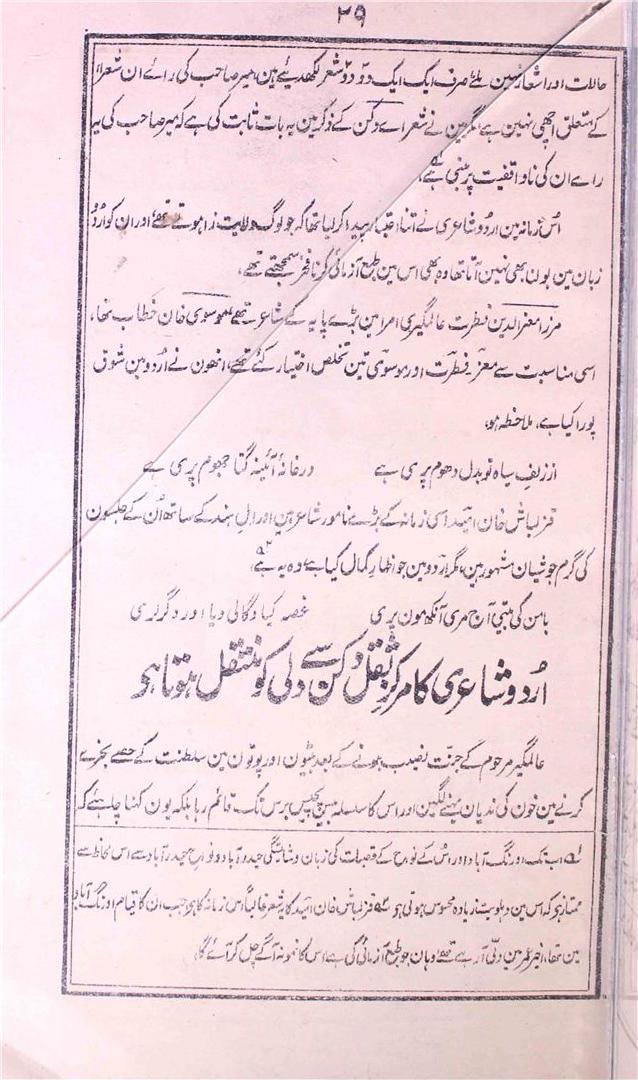 ۲۹
حالات اور اشعار نہین ملے صرف ایک ایک دو دو شعر لکھدیئے ہین، میر صاحب کی راے ان شعراء
کے متعلق اچھی نہین ہے، مگر مین نے شعراے دکن کے ذکر مین یہ بات ثابت کی ہے کہ میر صاحب کی یہ
راے ان کی ناواقفیت پر مبنی ہے،
اس زمانہ مین اردو شاعری نے اتنا اعتبار پیدا کر لیا تھا کہ جو لوگ ولایت زا ہوتے تھے اور ان کو اردو
زبان مین بولنا بھی نہین آتا تھا وہ بھی اس مین طبع آزمائی کرنا فخر سمجھتے تھے،
مرزا معز الدین فطرت عالمگیری امرا مین بڑے پایہ کے شاعر تھے، موسوی خان خطاب تھا،
اسی مناسبت سے معز، فطرت اور موسوی تین تخلص اختیار کئے تھے، انھون نے اردو مین شوق
پورا کیا ہے، ملاحظہ ہو،
از زلف سیاہ تو بدل دھوم پری ہے در خانۂ آئینہ گتا جھوم پری ہے
قزلباش خان امید اسی زمانہ کے بڑے نامور شاعر ہین اور اہل ہند کے ساتھ اُن کے جلسون
کی گرم جوشیان مشہور ہین، مگر اردو مین جو اظہار کمال کیا ہے، وہ یہ ہے،
بامن کی بیٹی آج مری آنکھ مون پری غصہ کیا و گالی دیا اور دگر لری
اُردو شاعری کا مرکزِ ثقل دکن سے دلی کو منتقل ہوتا ہو
عالمگیر مرحوم کے جنت نصیب ہونے کے بعد بیٹون اور پوتون مین سلطنت کے حصے بخرے
کرنے مین خون کی ندیان بہنے لگین اور اس کا سلسلہ بیس پچیس برس تک قائم رہا بلکہ یون کہنا چاہئے کہ
لہ اب تک اورنگ آباد اور اس کے نواح کے قصبات کی زبان و شایستگی حیدر آباد و نواح حیدرآباد سے اس لحاظ سے
ممتاز ہو کہ اس مین دہلویت زیادہ محسوس ہوتی ہو ۲ہ قزلباش خان امید کا یہ شعر غالباً اس زمانہ کا ہو جب ان کا قیام اورنگ آباد
مین تھا، اخیر عمر مین دلّی آ رہے تھے وہان جو طبع آزمائی کی ہے، اس کا نمونہ آگے چل کر آئے گا،